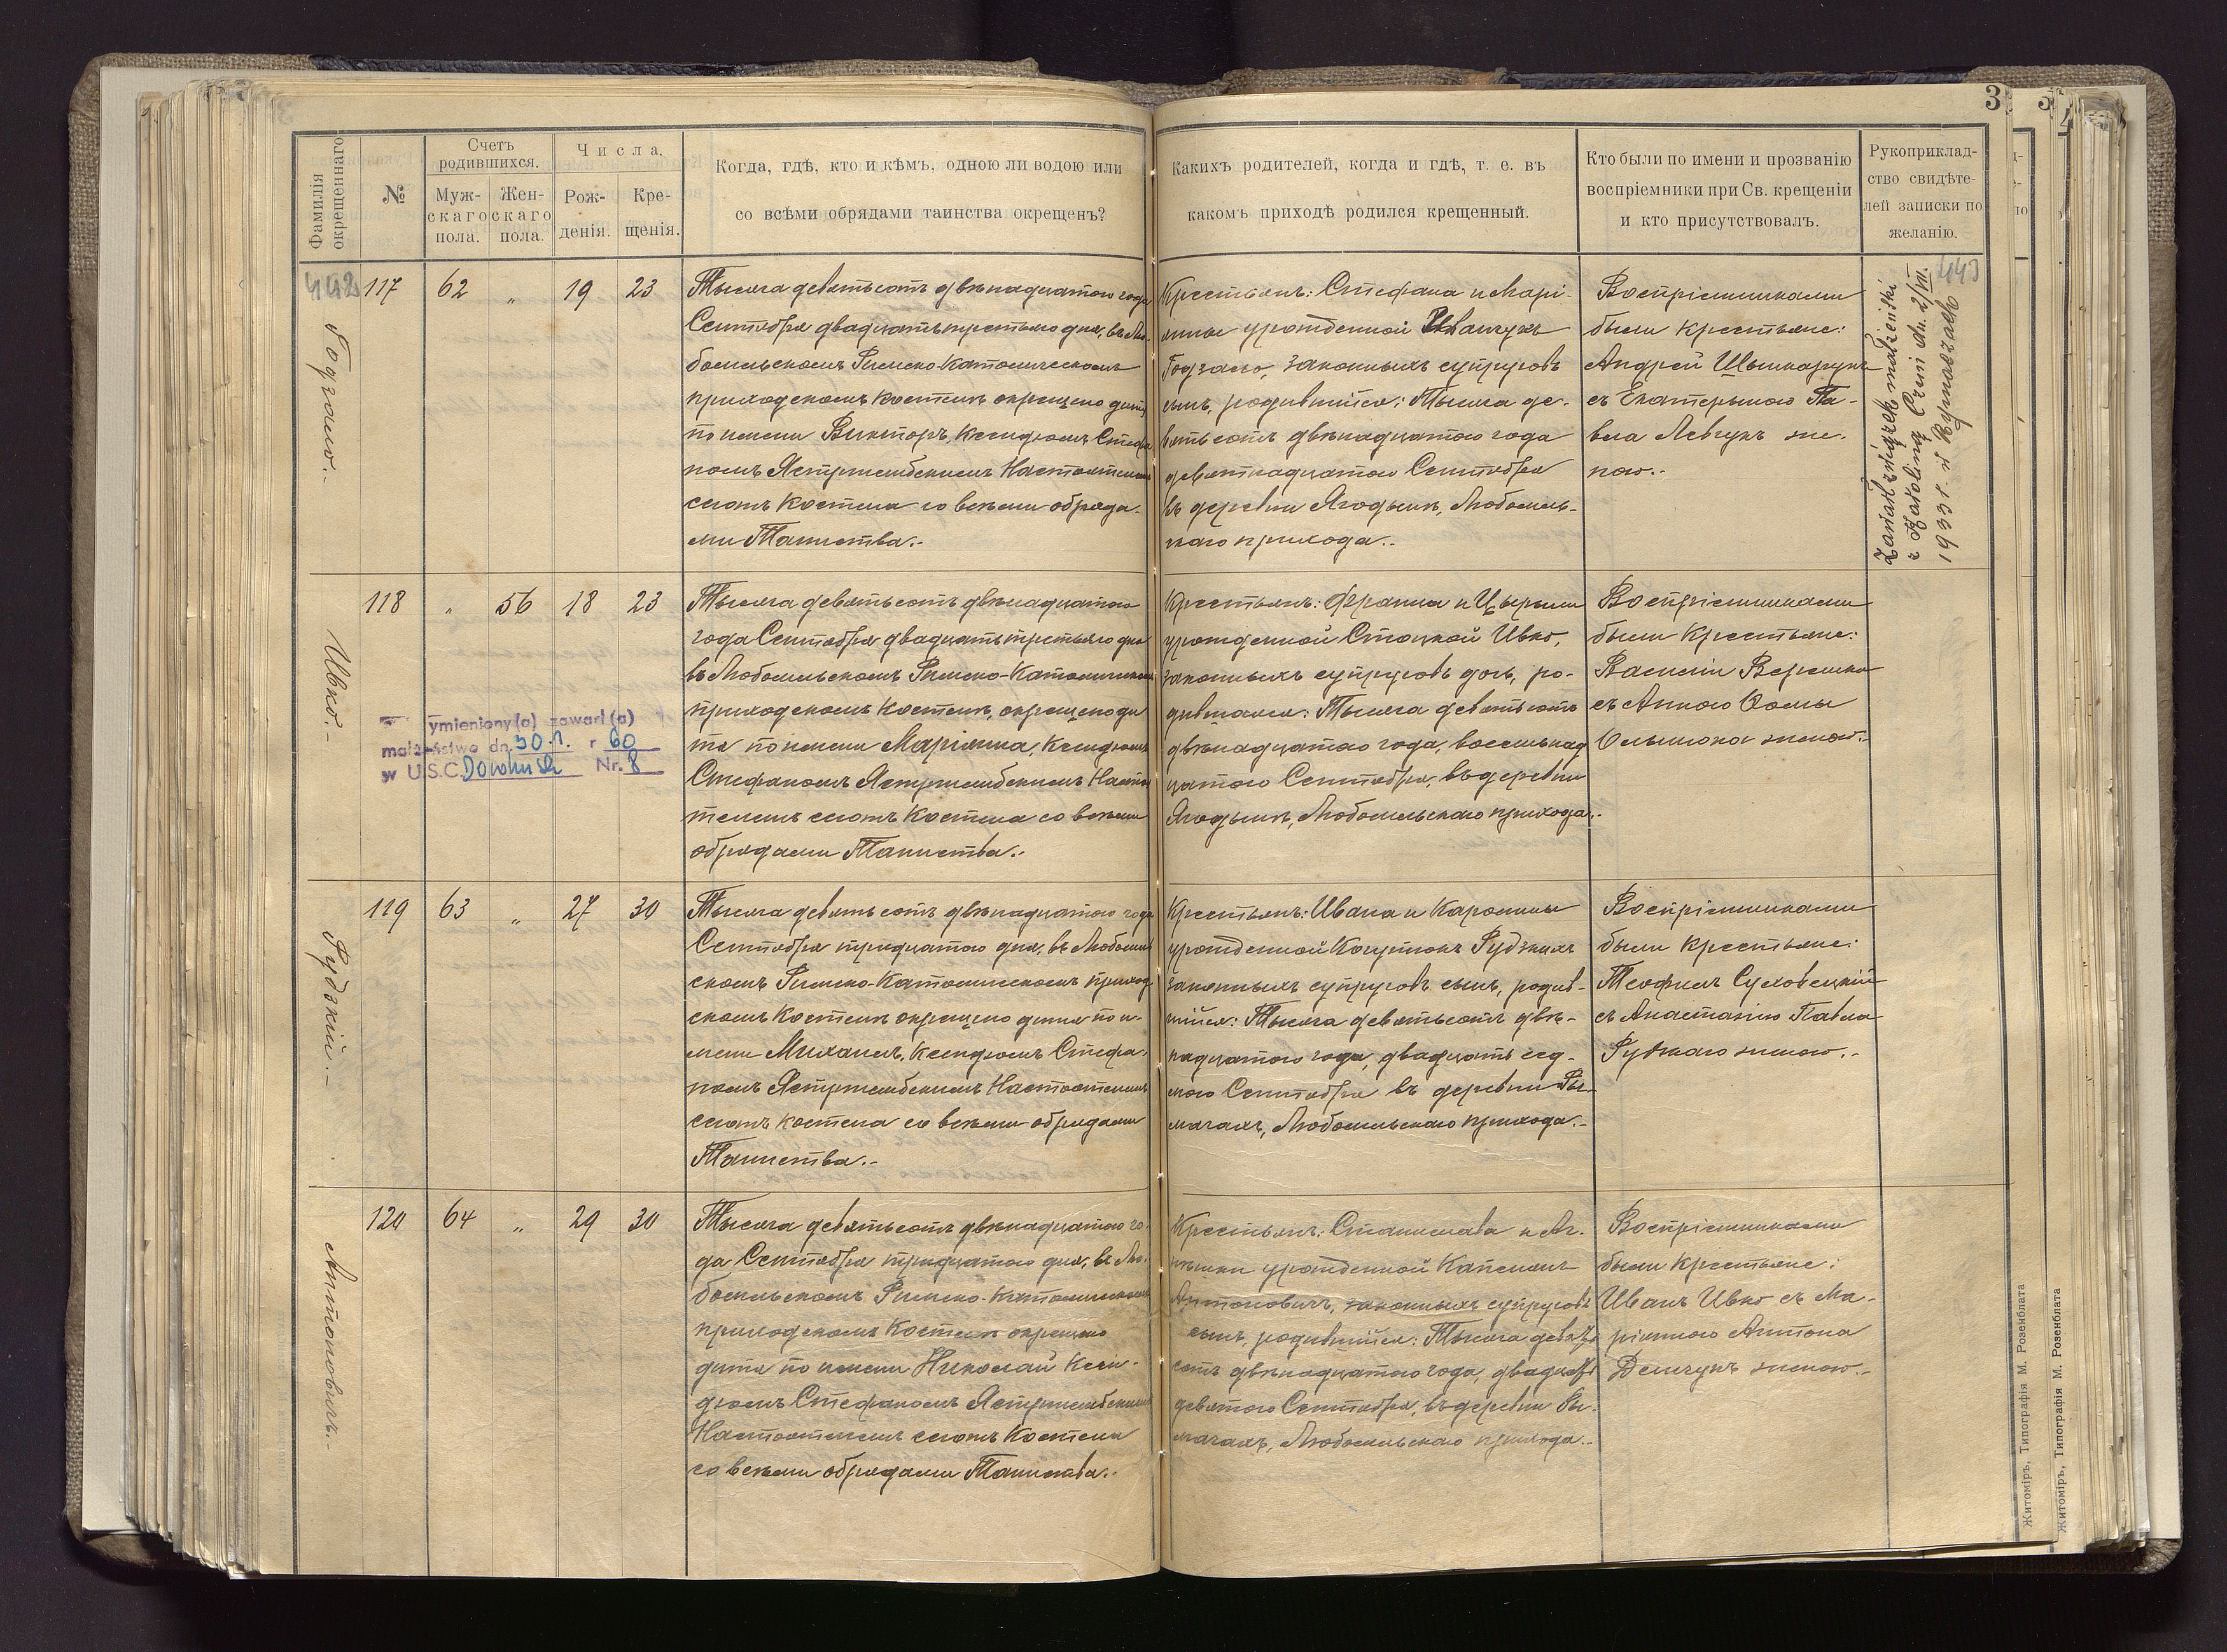 3
Фамилія окрещеннаго
№
Счетъ родившихся.
Муж-
скаго
пола.
Жен-
скаго
пола.
Числа.
Рож-
денія.
Кре-
щенія.
Когда, гдѣ, кто и кѣмъ, одною ли водою или
со всѣми обрядами таинства окрещенъ?
Какихъ родителей, когда и гдѣ, т. е. въ
какомъ приходѣ родился крещенный.
Кто были по имени и прозванію
воспріемники при Св. крещеніи
и кто присутствовалъ.
Рукоприклад-
ство свидѣте-
лей записки по
желанію.
442
443
117 62 „ 19 23
Тысяча девятьсотъ двѣнадцатого года
Сентября двадцатьтретьяго дня, въ Лю-
бомльскомъ Римско-Католическомъ
приходскомъ Костелѣ окрещено дитя
по имени Викторъ, Ксендзомъ Стефа
номъ Ястржембскимъ Настоятелемъ
сего Костела со всѣми обряда-
ми Таинства.-
Крестьянъ: Стефана и Марі-
анны урожденной
законныхъ супруговъ
сынъ, родившійся: Тысяча де-
вятьсотъ двѣнадцатого года
девятнадцатого Сентября
въ деревни Ягодынѣ, Любомль-
скаго прихода.-
Воспріемниками
были Крестьяне:
Андрей
съ Екатериною Па-
вла Левчукъ же-
ною.-
Zawarł związek małżeński
z Karoliną dn. 2/VII.
1933 r. w Rymaczach
118 „ 56 18 23
Ивко.-
Тысяча девятьсотъ двѣнадцатого
года Сентября двадцатьтретьяго дня
въ Любомльскомъ Римско-Католическомъ
приходскомъ Костелѣ, окрещено ди
тя по имени Маріанна, Ксендзомъ
Стефаномъ Ястржембскимъ Настоя
телемъ сего Костела со всѣми
обрядами Таинства.-
Крестьянъ: Франка и
урожденной Стоцкой Ивко,
законныхъ супруговъ дочь, ро-
дившаяся: Тысяча девятьсотъ
двѣнадцатого года, восемьнад
цатого Сентября, въ деревни
Ягодынѣ, Любомльскаго прихода.-
Воспріемниками
были Крестьяне:
Василій
съ Анною Ѳомы
женою.-
ymieniony(a) zawarł(a)
małżeństwo dn. 30.1. r 60
w U.S.C. Dorohusk Nr. 8
119 63 „ 27 30
Рудзкій.-
Тысяча девятьсотъ двѣнадцатого года
Сентября тридцатого дня, въ Любомль
скомъ Римско-Католическомъ приход
скомъ Костелѣ окрещено дитя по и-
мени Михаилъ, Ксендзомъ Стефа-
номъ Ястржембскимъ Настоятелемъ
сего Костела со всѣми обрядами
Таинства.-
Крестьянъ: Ивана и Каролины
урожденной Рудзкихъ
законныхъ супруговъ сынъ, родив-
шійся: Тысяча девятьсотъ двѣ-
надцатого года, двадцать сед-
мого Сентября въ деревни Ры-
мачахъ, Любомльскаго прихода.-
Воспріемниками
были Крестьяне:
Теофилъ Суховецкій
съ Анастазіею Павла
Рудзкаго женою.-
120 64 „ 29 30
Антоновичъ.-
Тысяча девятьсотъ двѣнадцатого го-
да Сентября тридцатого дня, въ Лю-
бомльскомъ Римско-Католическомъ
приходскомъ Костелѣ окрещено
дитя по имени Николай Ксен-
дзомъ Стефаномъ Ястржембскимъ
Настоятелемъ сего Костела
со всѣми обрядами Таинства.-
Крестьянъ: Станислава и Аг-
нѣшки урожденной
Антоновичъ, законныхъ супруговъ
сынъ, родившійся: Тысяча девять
сотъ двѣнадцатого года, двадцать
девятого Сентября, въ деревни Ры-
мачахъ, Любомльскаго прихода.-
Воспріемниками
были Крестьяне:
Иванъ Ивко съ Ма-
ріанною Антона
Демчукъ женою.-
Житоміръ, Типографія М. Розенблата
Житоміръ, Типографія М. Розенблата